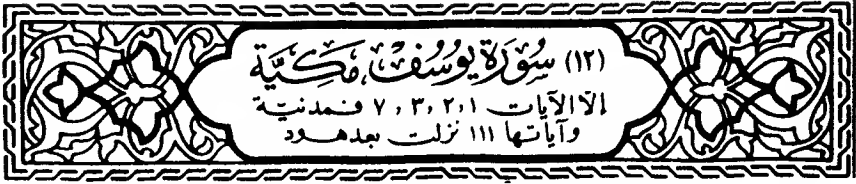 (١٢) سُوْرَة يُوسُفْ مَكِيَّة
إلّا الآيات ١ ، ٢ ، ٣ ، ٧ فمدنيّة
وآياتها ١١١ نزلت بعد هود